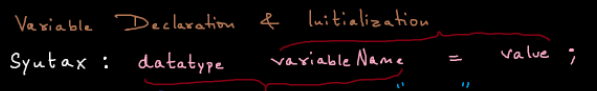 Variable Declaration & Initialization
Syntax : datatype variableName = value ;
" "